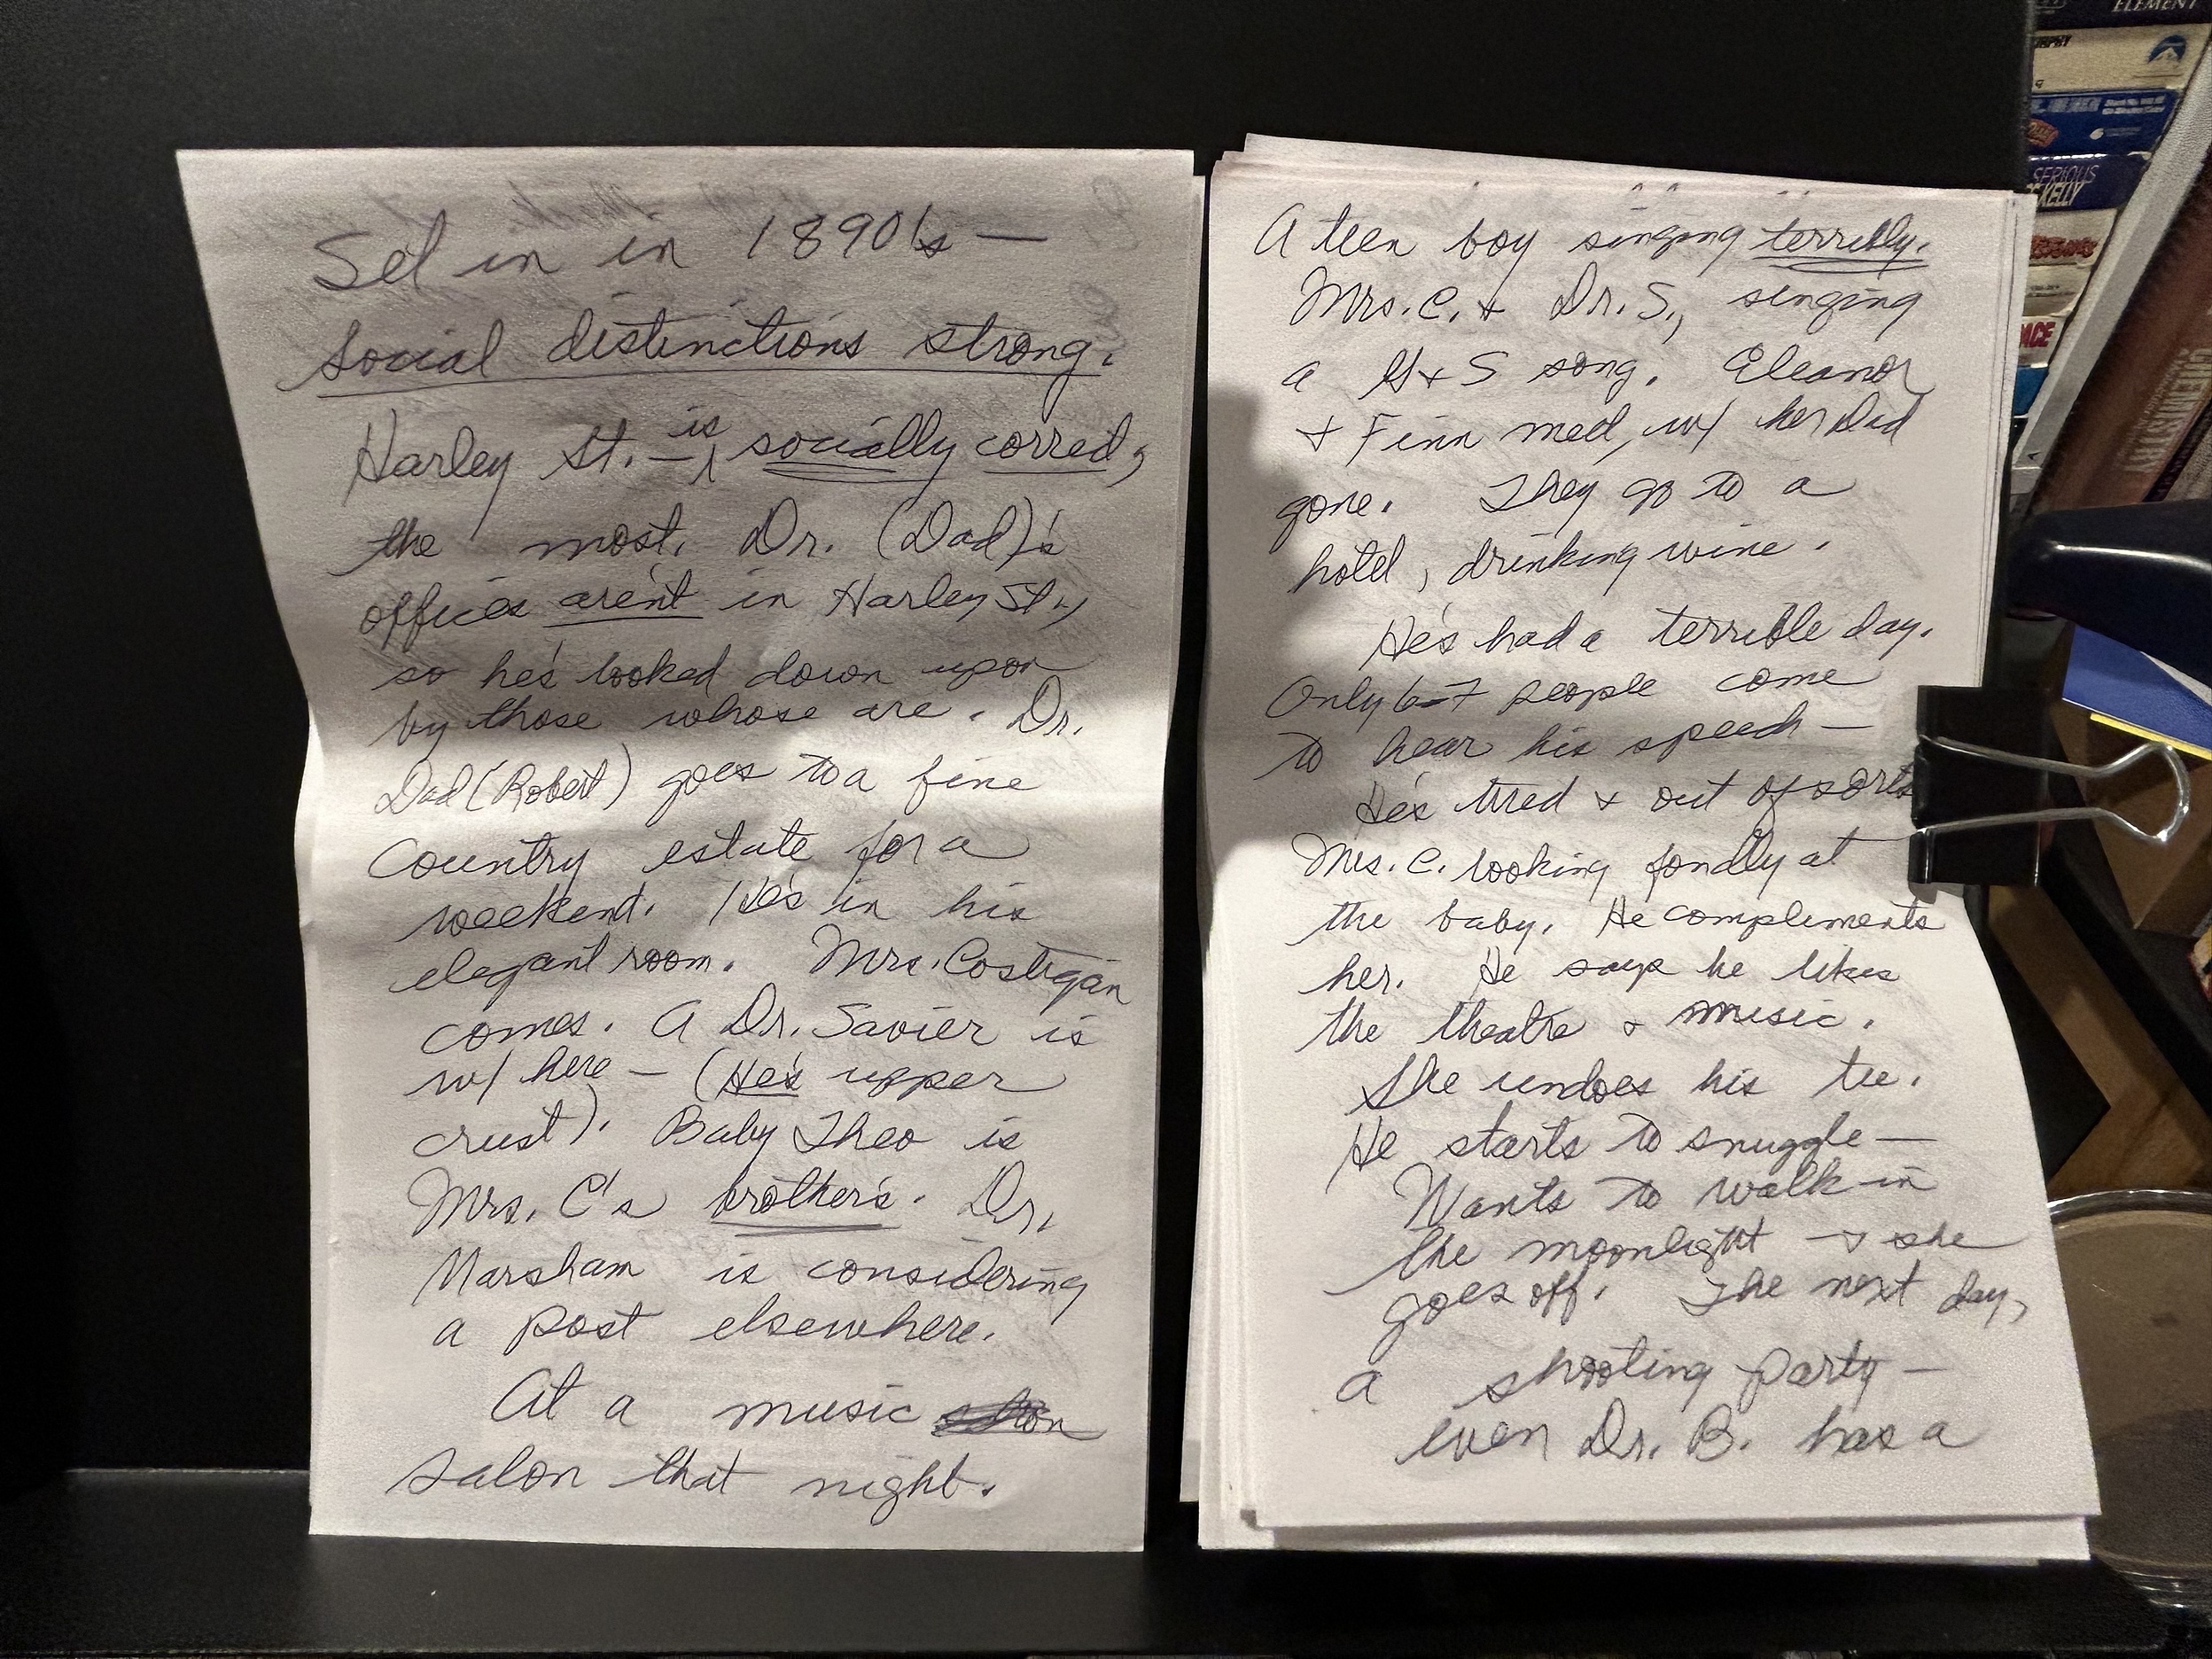 Set in in 1890's —
social distinctions strong.
Harley St. — is socially correct,
the most. Dr. (Dad)'s
offices aren't in Harley St.,
so he's looked down upon
by those whose are. Dr.
Dad (Robert) goes to a fine
Country estate for a
weekend. He's in his
elegant room. Mrs. Costigan
comes. A Dr. Savier is
w/ here — (He's upper
crust). Baby Theo is
Mrs. C's brother's. Dr.
Marsham is considering
a post elsewhere.
At a music
salon that night.
A teen boy singing terribly.
Mrs. C. + Dr. S., singing
a G+S song. Eleanor
+ Finn med, w/ her Dad
gone. They go to a
hotel, drinking wine.
He's had a terrible day.
Only 6-7 people come
to hear his speech —
He's tired + out of sorts
Mrs. C. looking fondly at
the baby. He compliments
her. He says he likes
the theatre + music.
She undoes his tie.
He starts to snuggle —
Wants to walk in
the moonlight → she
goes off. The next day,
a shooting party —
even Dr. B. has a
ELEMENT
SERIOUS
KELLY
CHEMISTRY